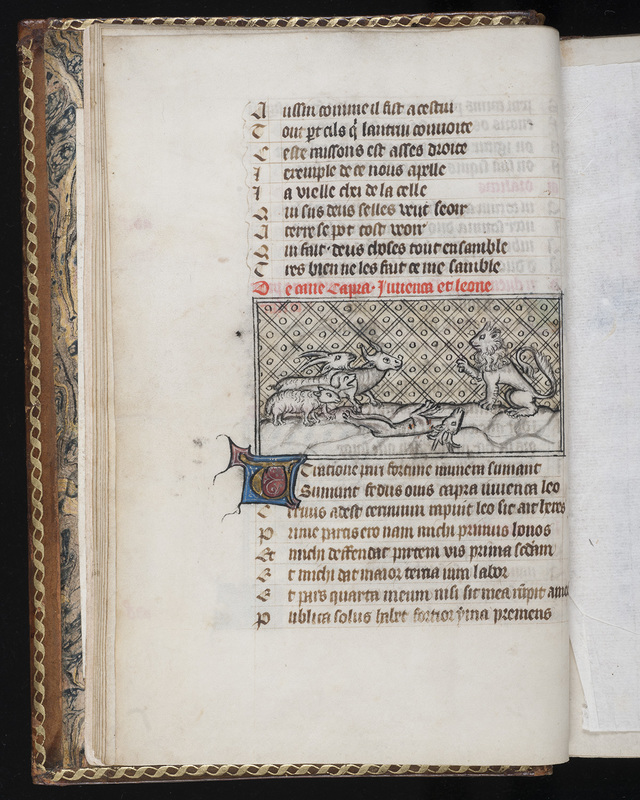 A ussin comme il fist a cestui
T out pt cilz q̃ lautrui couuoite
C este missons est asses droite
J exemple de ce nous apelle
J a vielle chi de la celle
Q ui sus deus selles veut seoir
A terre se pot tost veoir
Q ui fait deus choses tout ensamble
T res bien ne les fait ce me samble
D e cane Capra Juuenca et leone
Ut ratione pari fortune munera sumant
Sumunt fedus ouis capra iuuenca leo
C eruus adest ceruum rapuit leo sic ait heres
P rime partis ero nam michi primus honos
Et michi deffendat partem vis prima sedam
E t michi dat maior terna ium labor
E t pars quarta meum nisi sit mea rũpit amo
P ublica solus habet fortior p̃ma premens